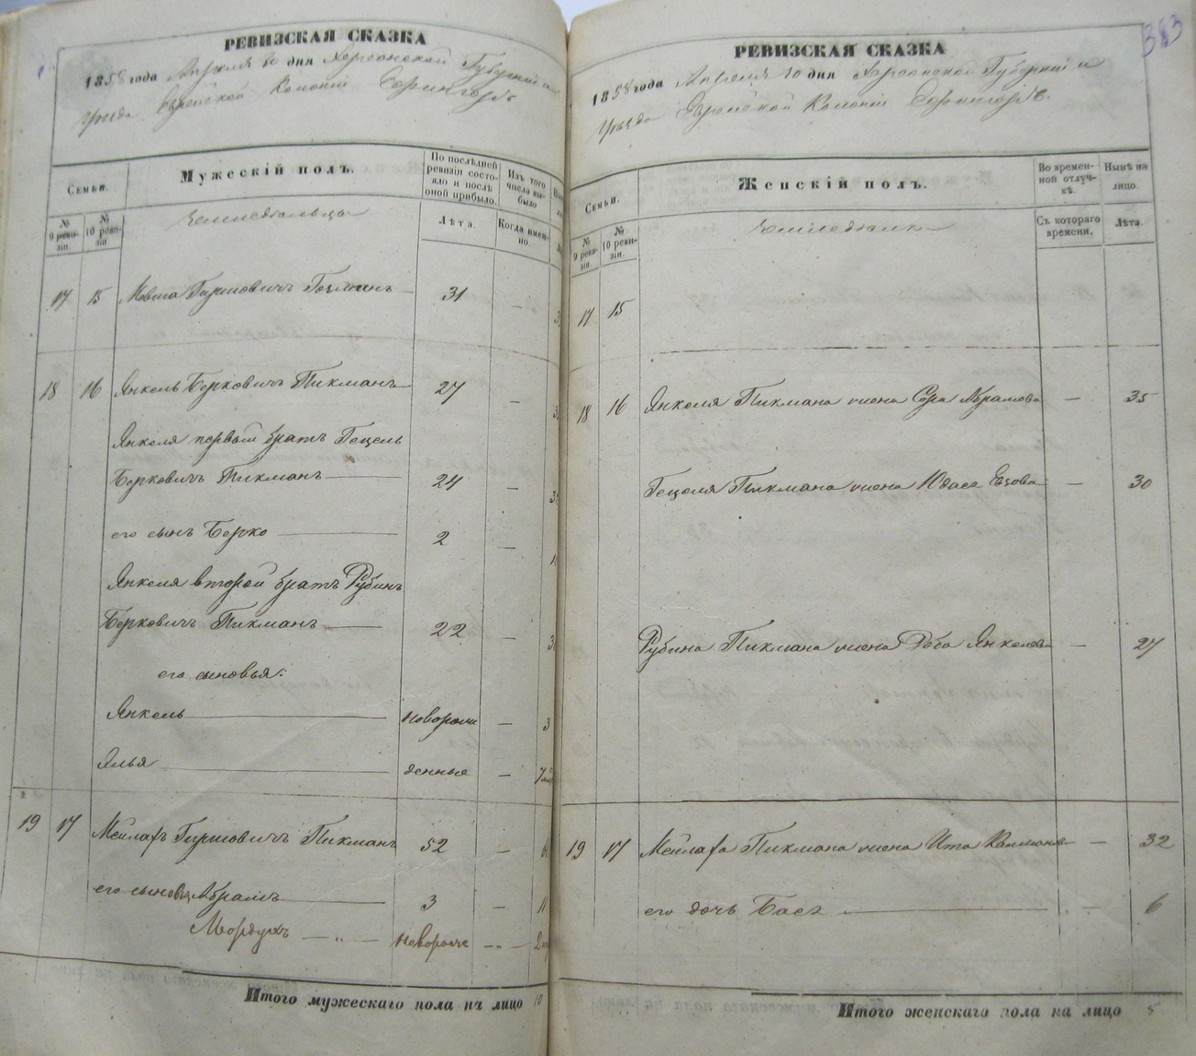 РЕВИЗСКАЯ СКАЗКА
1858 года Апреля 10 дня Херсонской Губерніи и
Уѣзда Еврейской Колоніи
Семьи.
№ 9 реви- зіи.
№ 10 реви- зіи.
Мужескій полъ.
По послѣдней ревизіи состо- яло и послѣ оной прибыло.
Изъ того числа вы- было
Лѣта.
Когда имен- но.
Земледѣльцы
17 15 Мовша Гиршовичъ 31 —
18 16 Янкель Берковичъ Пикманъ 27 —
Янкеля первый братъ Гецель
Берковичъ Пикманъ 24 —
его сынъ Берко 2 —
Янкеля второй братъ Рубинъ
Берковичъ Пикманъ 22 —
его сыновья:
Янкель новорож —
Илья денные —
19 17 Мейлахъ Гиршовичъ Пикманъ 52 —
его сыновья Абрамъ 3 —
Мордухъ — „ —
Итого мужескаго пола нъ лицо 10
383
РЕВИЗСКАЯ СКАЗКА
1858 года Апреля 10 дня Херсонской Губерніи и
Уѣзда Еврейской Колоніи
Семьи.
№ 9 реви- зіи.
№ 10 реви- зіи.
Женскій полъ.
Во времен- ной отлуч- кѣ.
Нынѣ на лицо.
Съ котораго времени.
Лѣта.
17 15
18 16 Янкеля Пикмана жена Сора Абрамова — 35
Гецеля Пикмана жена — 30
Рубина Пикмана жена Доба Янкелева — 27
19 17 Мейлаха Пикмана жена Ита — 32
его дочь Бася — 6
Итого женскаго пола на лицо 5